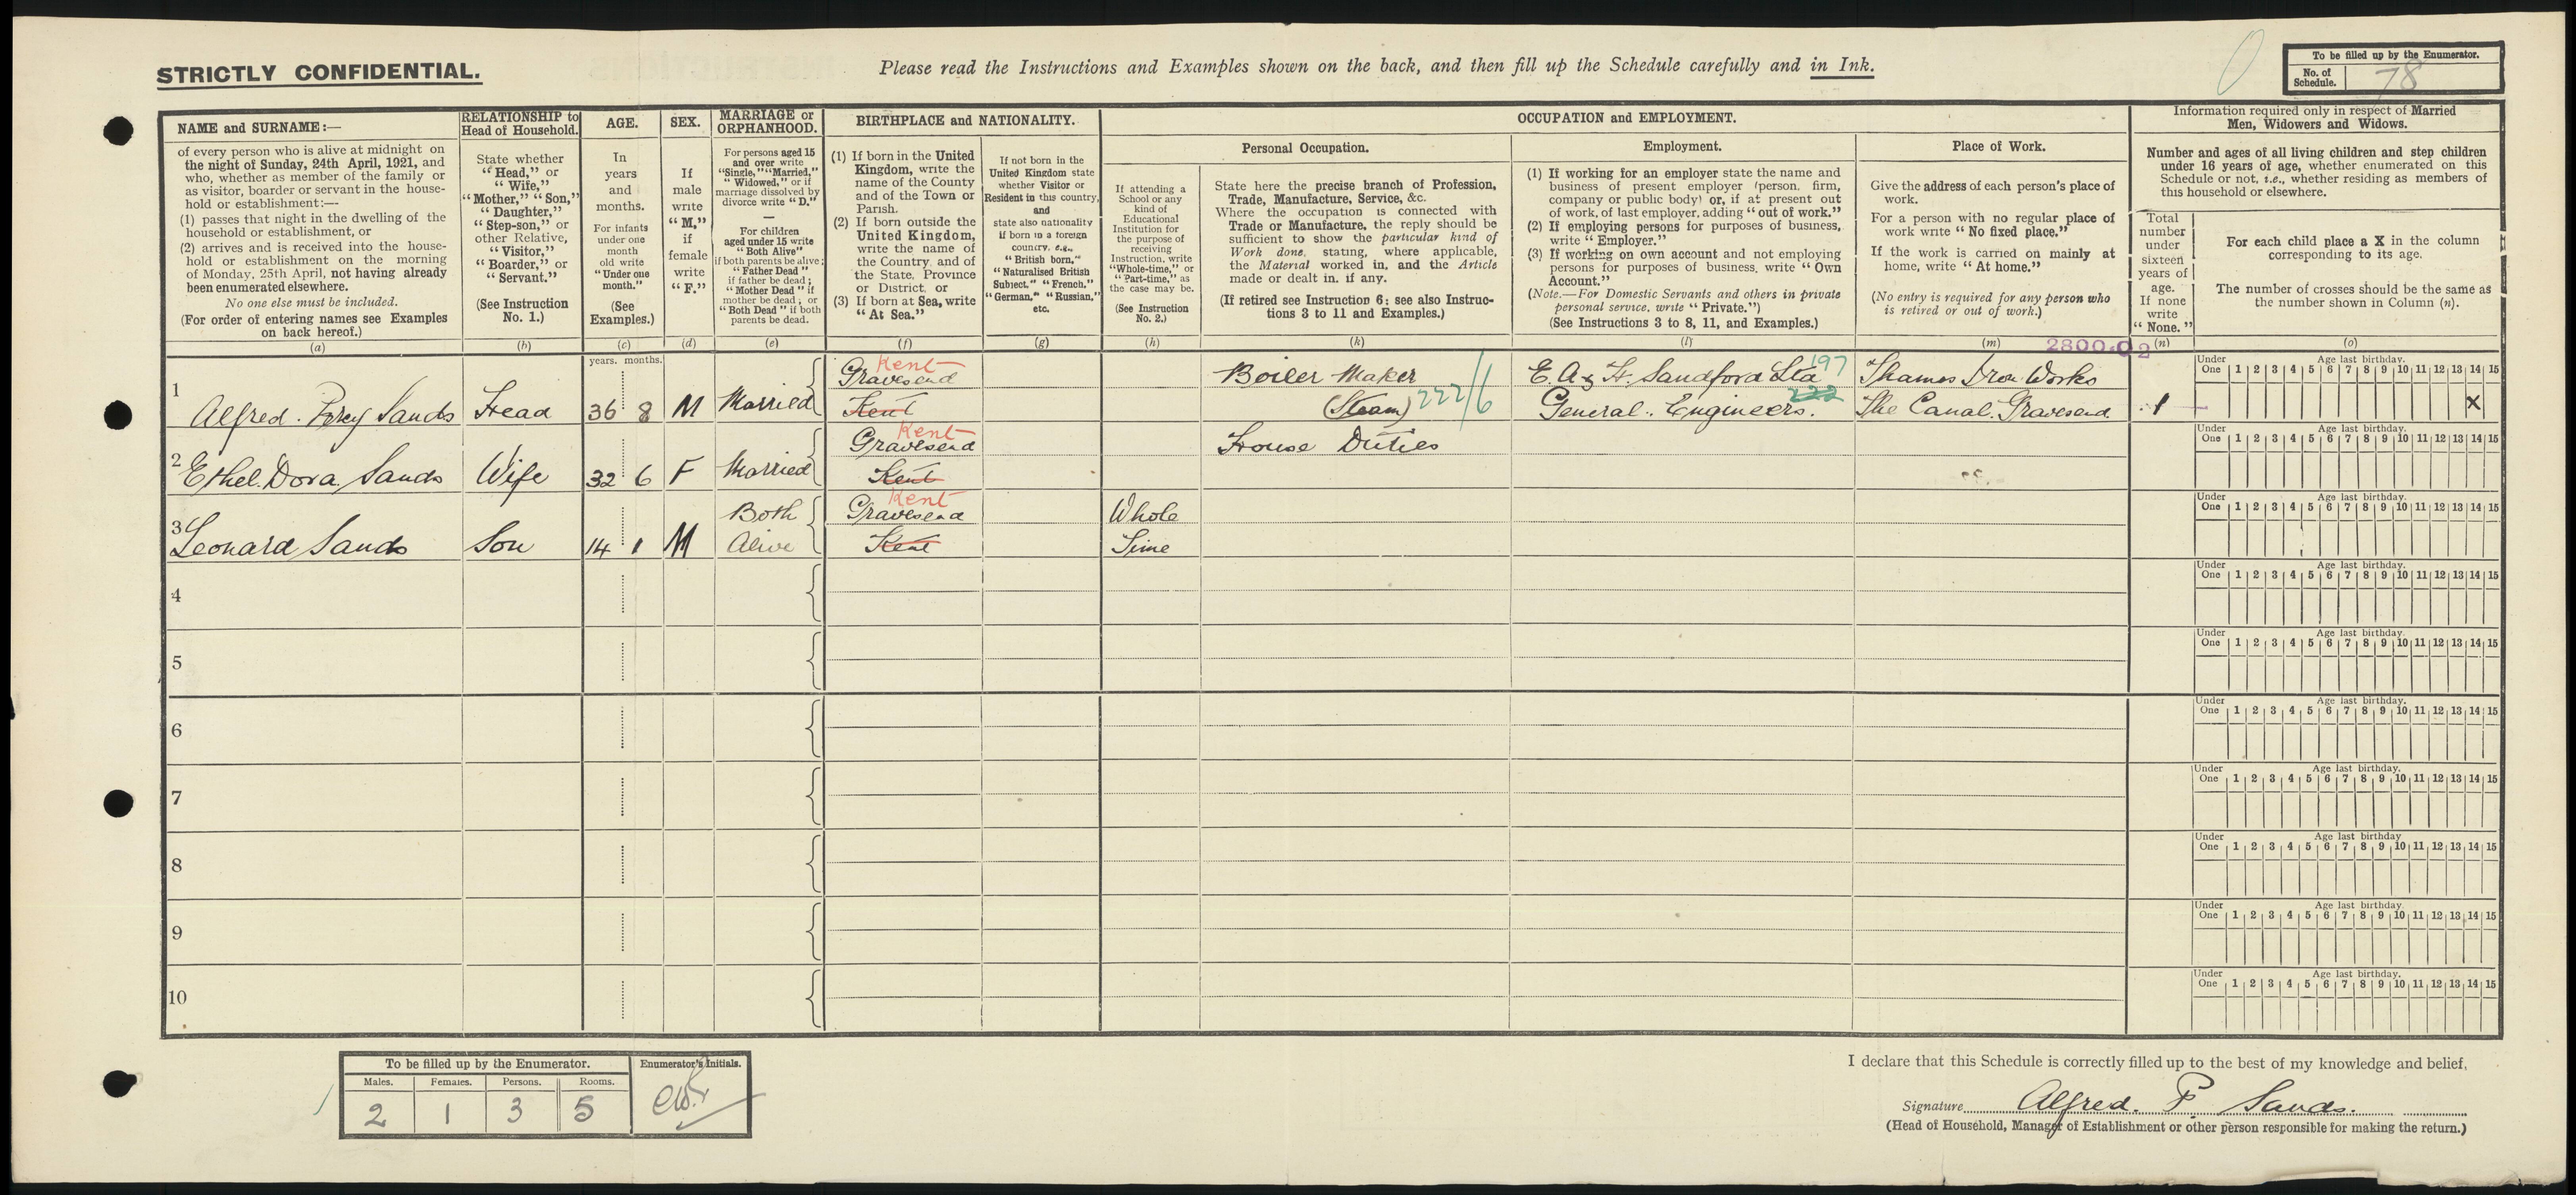 STRICTLY CONFIDENTIAL.
Please read the Instructions and Examples shown on the back, and then fill up the Schedule carefully and in Ink.
To be filled up by the Enumerator.
No. of Schedule. 78
NAME and SURNAME:—
of every person who is alive at midnight on
the night of Sunday, 24th April, 1921, and
who, whether as member of the family or
as visitor, boarder or servant in the house-
hold or establishment:—
(1) passes that night in the dwelling of the
household or establishment, or
(2) arrives and is received into the house-
hold or establishment on the morning
of Monday, 25th April, not having already
been enumerated elsewhere.
No one else must be included.
(For order of entering names see Examples
on back hereof.)
(a)
RELATIONSHIP to
Head of Household.
State whether
"Head," or
"Wife,"
"Mother," "Son,"
"Daughter,"
"Step-son," or
other Relative,
"Visitor,"
"Boarder," or
"Servant."
(See Instruction
No. 1.)
(b)
AGE.
In
years
and
months.
For infants
under one
month
old write
"Under one
month."
(See
Examples.)
(c)
SEX.
If
male
write
"M,"
if
female
write
"F."
(d)
MARRIAGE or
ORPHANHOOD.
For persons aged 15
and over write
"Single," "Married,"
"Widowed," or if
marriage dissolved by
divorce write "D."
—
For children
aged under 15 write
"Both Alive"
if both parents be alive;
"Father Dead"
if father be dead;
"Mother Dead" if
mother be dead; or
"Both Dead" if both
parents be dead.
(e)
BIRTHPLACE and NATIONALITY.
(1) If born in the United
Kingdom, write the
name of the County
and of the Town or
Parish.
(2) If born outside the
United Kingdom,
write the name of
the Country, and of
the State, Province
or District, or
(3) If born at Sea, write
"At Sea."
(f)
If not born in the
United Kingdom state
whether Visitor or
Resident in this country,
and
state also nationality
if born in a foreign
country, e.g.,
"British born,"
"Naturalised British
Subject," "French,"
"German," "Russian,"
etc.
(g)
OCCUPATION and EMPLOYMENT.
If attending a
School or any
kind of
Educational
Institution for
the purpose of
receiving
Instruction, write
"Whole-time," or
"Part-time," as
the case may be.
(See Instruction
No. 2.)
(h)
Personal Occupation.
State here the precise branch of Profession,
Trade, Manufacture, Service, &c.
Where the occupation is connected with
Trade or Manufacture, the reply should be
sufficient to show the particular kind of
Work done, stating, where applicable,
the Material worked in, and the Article
made or dealt in, if any.
(If retired see Instruction 6: see also Instruc-
tions 3 to 11 and Examples.)
(k)
Employment.
(1) If working for an employer state the name and
business of present employer (person, firm,
company or public body) or, if at present out
of work, of last employer, adding "out of work."
(2) If employing persons for purposes of business,
write "Employer."
(3) If working on own account and not employing
persons for purposes of business, write "Own
Account."
(Note.—For Domestic Servants and others in private
personal service, write "Private.")
(See Instructions 3 to 8, 11, and Examples.)
(l)
Place of Work.
Give the address of each person's place of
work.
For a person with no regular place of
work write "No fixed place."
If the work is carried on mainly at
home, write "At home."
(No entry is required for any person who
is retired or out of work.)
(m)
2800.02
Information required only in respect of Married
Men, Widowers and Widows.
Number and ages of all living children and step children
under 16 years of age, whether enumerated on this
Schedule or not, i.e., whether residing as members of
this household or elsewhere.
Total
number
under
sixteen
years of
age.
If none
write
"None."
(n)
For each child place a X in the column
corresponding to its age.
The number of crosses should be the same as
the number shown in Column (n).
(o)
years. months.
Kent
1 Gravesend Boiler Maker E. A. & H. Sandford Ltd 197 Thames Iron Works
Alfred. Percy Sands Head 36 8 M Married Kent (Steam) 222/6 General. Engineers. 222 The Canal. Gravesend 1 X
Under One 1 2 3 4 5 6 7 8 9 10 11 12 13 14 15 Age last birthday.
Kent
2 Gravesend House Duties
Ethel. Dora. Sands Wife 32 6 F Married Kent
Under One 1 2 3 4 5 6 7 8 9 10 11 12 13 14 15 Age last birthday.
Kent
3 Both Gravesend Whole
Leonard Sands Son 14 1 M Alive Kent Time
Under One 1 2 3 4 5 6 7 8 9 10 11 12 13 14 15 Age last birthday.
4
Under One 1 2 3 4 5 6 7 8 9 10 11 12 13 14 15 Age last birthday.
5
Under One 1 2 3 4 5 6 7 8 9 10 11 12 13 14 15 Age last birthday.
6
Under One 1 2 3 4 5 6 7 8 9 10 11 12 13 14 15 Age last birthday.
7
Under One 1 2 3 4 5 6 7 8 9 10 11 12 13 14 15 Age last birthday.
8
Under One 1 2 3 4 5 6 7 8 9 10 11 12 13 14 15 Age last birthday
9
Under One 1 2 3 4 5 6 7 8 9 10 11 12 13 14 15 Age last birthday.
10
Under One 1 2 3 4 5 6 7 8 9 10 11 12 13 14 15 Age last birthday.
To be filled up by the Enumerator.
Males. Females. Persons. Rooms.
2 1 3 5
Enumerator's Initials.
I declare that this Schedule is correctly filled up to the best of my knowledge and belief,
Signature Alfred. P. Sands.
(Head of Household, Manager of Establishment or other person responsible for making the return.)